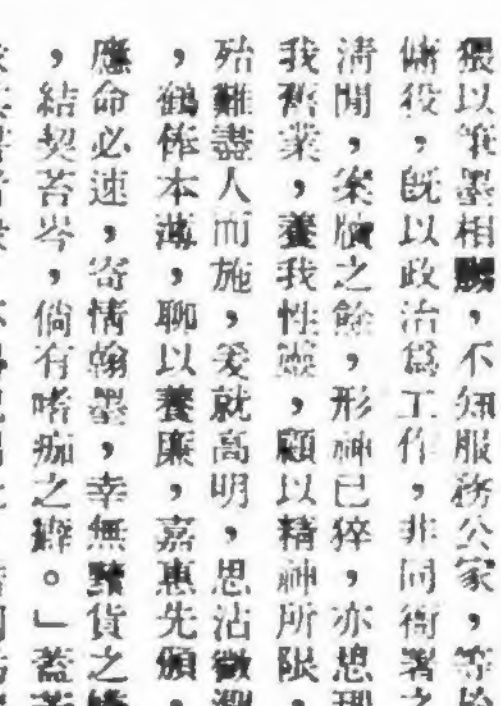 猥以筆墨相，不知服務公家，等於
傭役，既以政治爲工作，非同衙署之
清閒，案牘之餘，形神已猝，亦思理
我舊業，養我性靈，顧以精神所限，
殆難盡人而施，爰就高明，思沾微潤
，鶴俸本薄，聊以養廉，嘉惠先頒，
應命必速，寄情翰墨，幸無黷貨之
，結契苔岑，倘有嗜痂之癖。」蓋